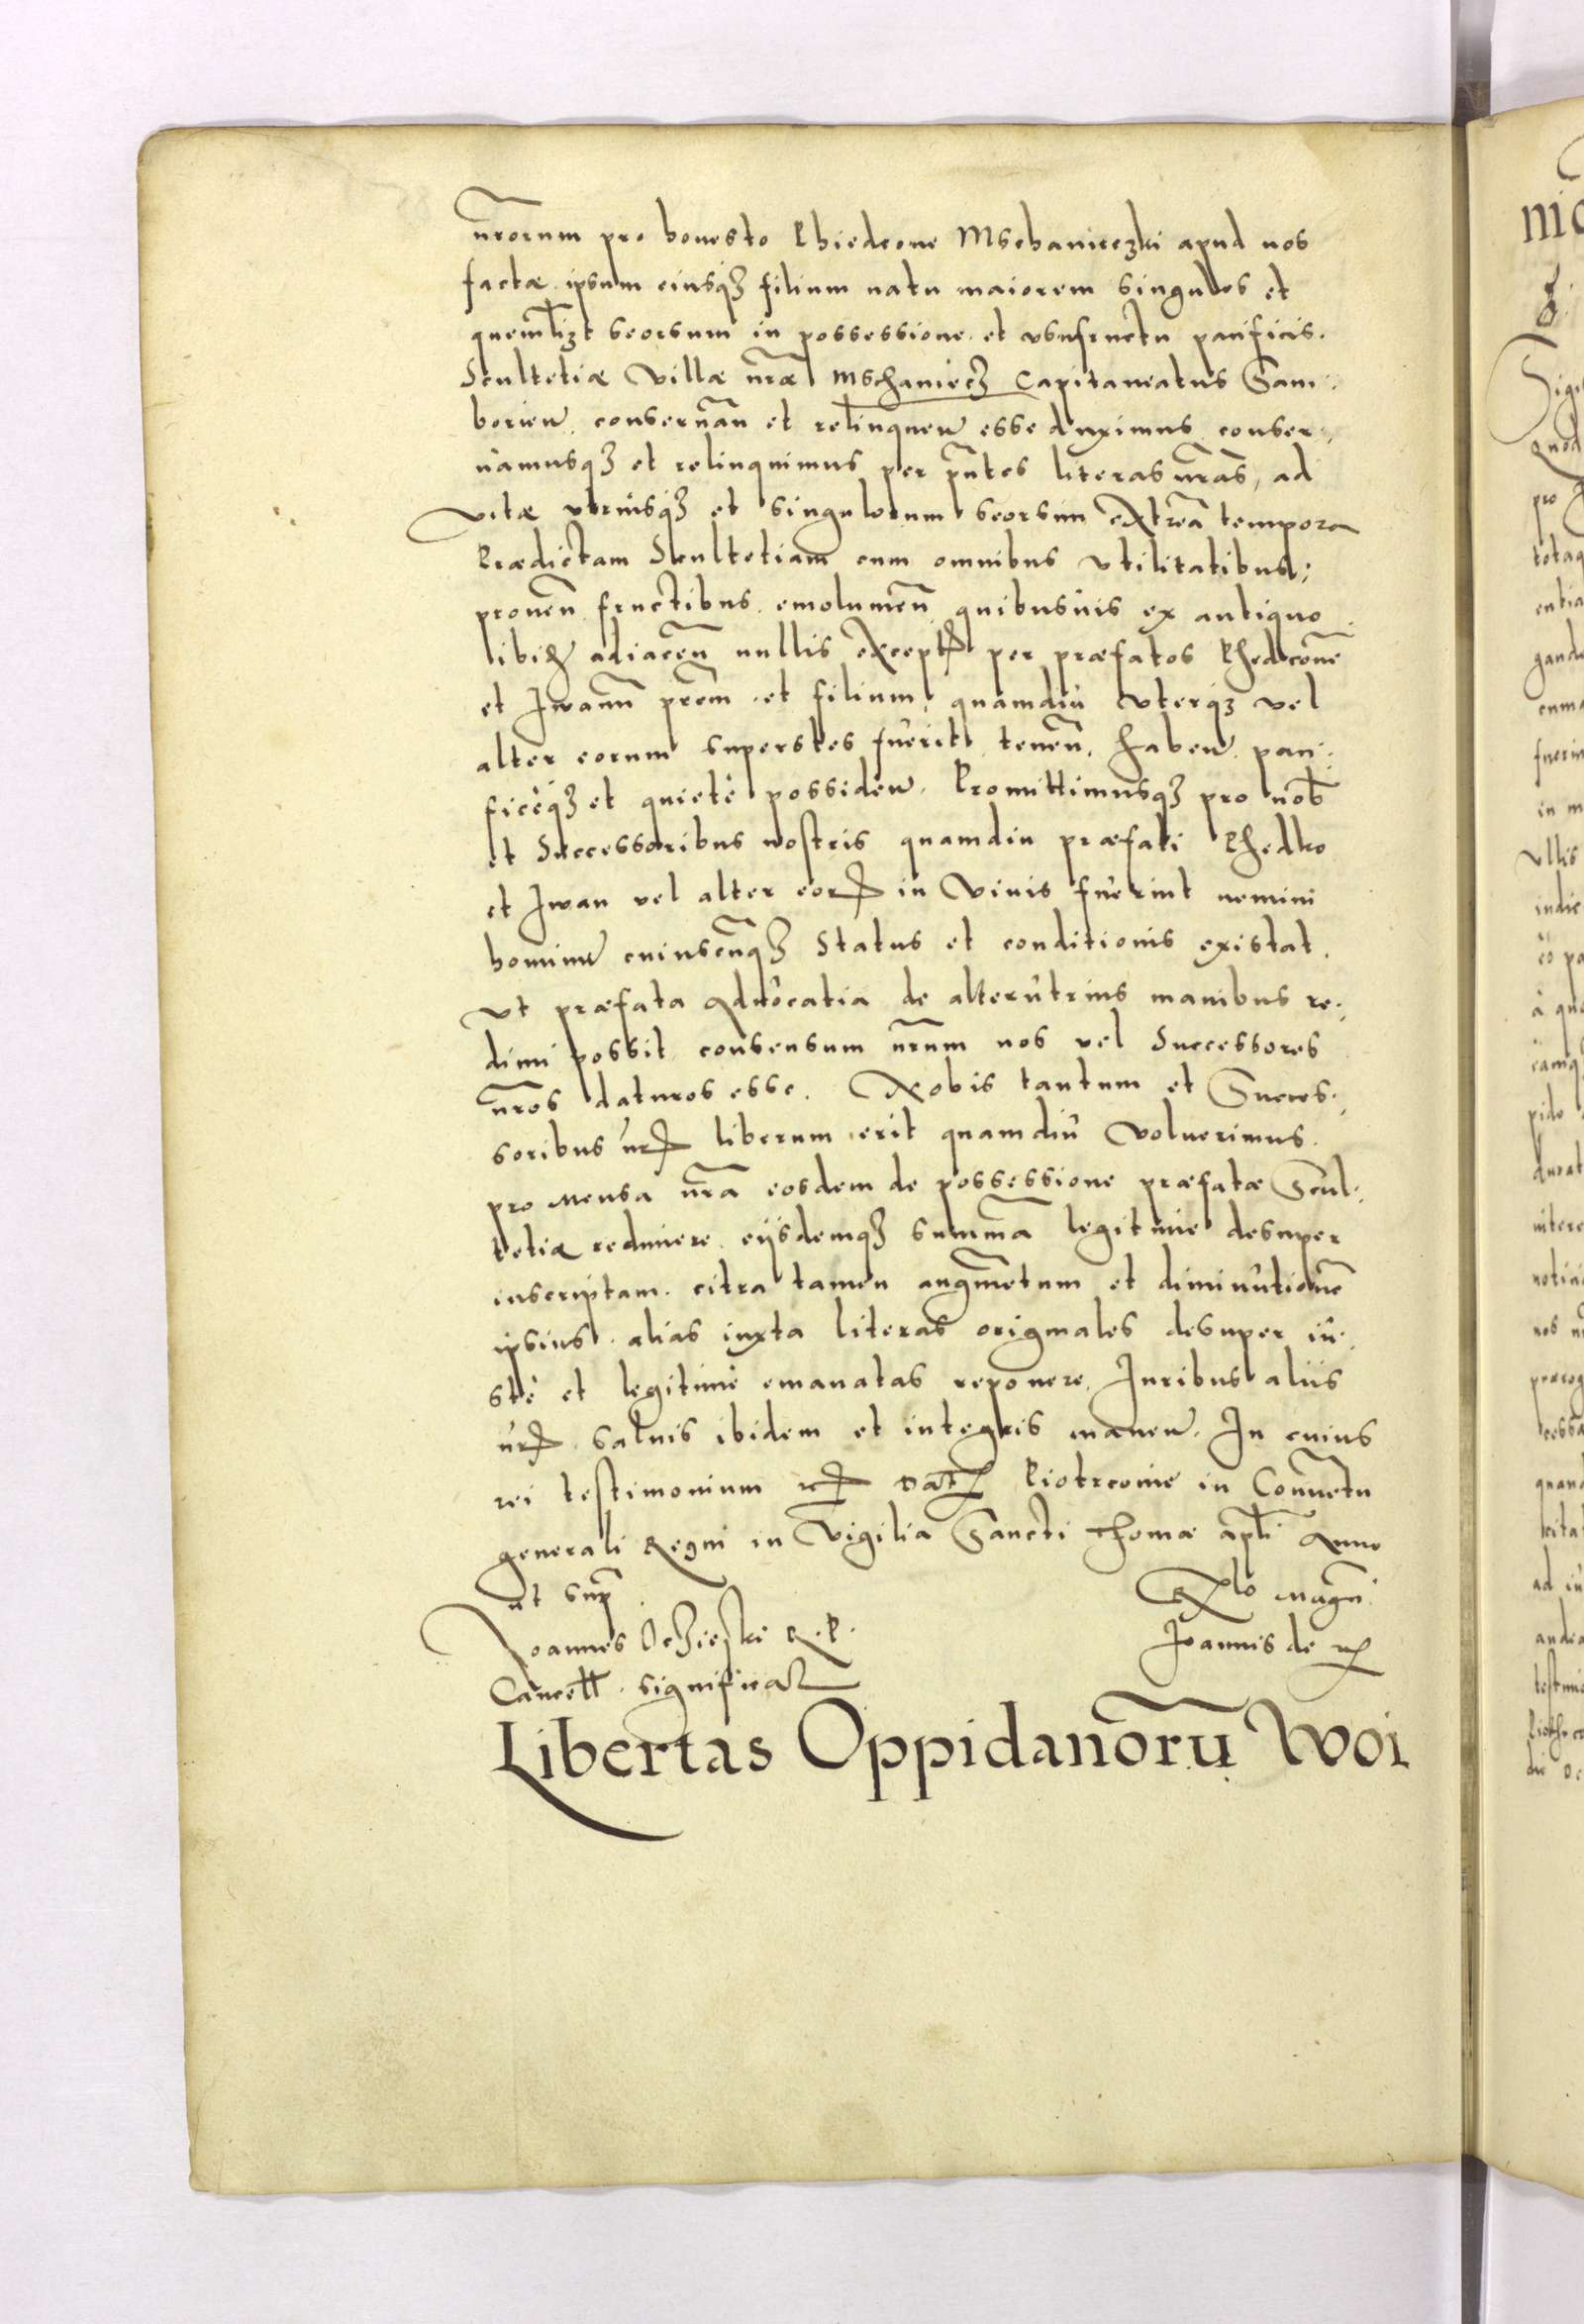 nr̃orum pro honesto Phiedcone Mschanieczki apud nos
factæ ipsum eiusq3 filium natu maiorem singulos et
quemlibet seorsum in possessione et vsufructu pacificis.
Scultetiæ Villæ nr̃æ Mschaniecz Capitaneatus Sam-
borien̄. conseruan̄ et relinquen̄ esse duximus conser-
uamusq3 et relinquimus per pn̄tes literas nr̃as, ad
vitæ vtriusq3 et singulorum seorsim extrēa tempora
Prædictam Scultetiam cum omnibus vtilitatibus;
prouen̄ fructibus. emolumen̄ quibusuis ex antiquo
ibidem adiacen̄ nullis exceptis per præfatos Phedcone
et Iwan̄ prēm et filium, quamdiu vterq3 vel
alter eorum superstes fuerit tenen̄. haben̄. paci-
ficeq3 et quietè possiden̄. Promittimusq3 pro nob̄
et Successoribus nostris quamdiu præfati Phedko
et Iwan vel alter eorum in viuis fuerint nemini
hominū cuiuscunq3 status et conditionis existat.
vt præfata aduocatia de alterutrius manibus re-
dimi possit consensum nr̃um nos vel Successores
nr̃os daturos esse. Nobis tantum et Succes-
soribus nr̃is liberum erit quamdiu voluerimus.
pro mensa nr̃a eosdem de possessione præfatæ Scul-
tetiæ redimere eijsdemq3 sum̄ma legitime desuper
inscriptam. citra tamen augmētum et diminutionē
ipsius. alias iuxta literas originales desuper iu-
stè et legitimè emanatas reponere. Iuribus aliis
nr̃is saluis ibidem et integris manen̄. In cuius
rei testimonium rc̄ Dat̄ Piotrcouie in Conuētu
generali Regni in Vigilia Sancti Thomæ apl̄i Anno
ut supr̃
Rlō Magn̄
Joannes Oczieski R. P.
Joannis de rc̄
Cancell. significat
Libertas Oppidanorū Woi